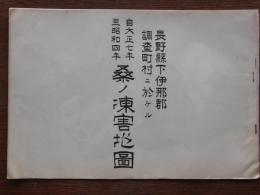 長野縣下伊那郡
調査町村ニ於ケル
自大正七年
至昭和四年
桑ノ凍害地圖